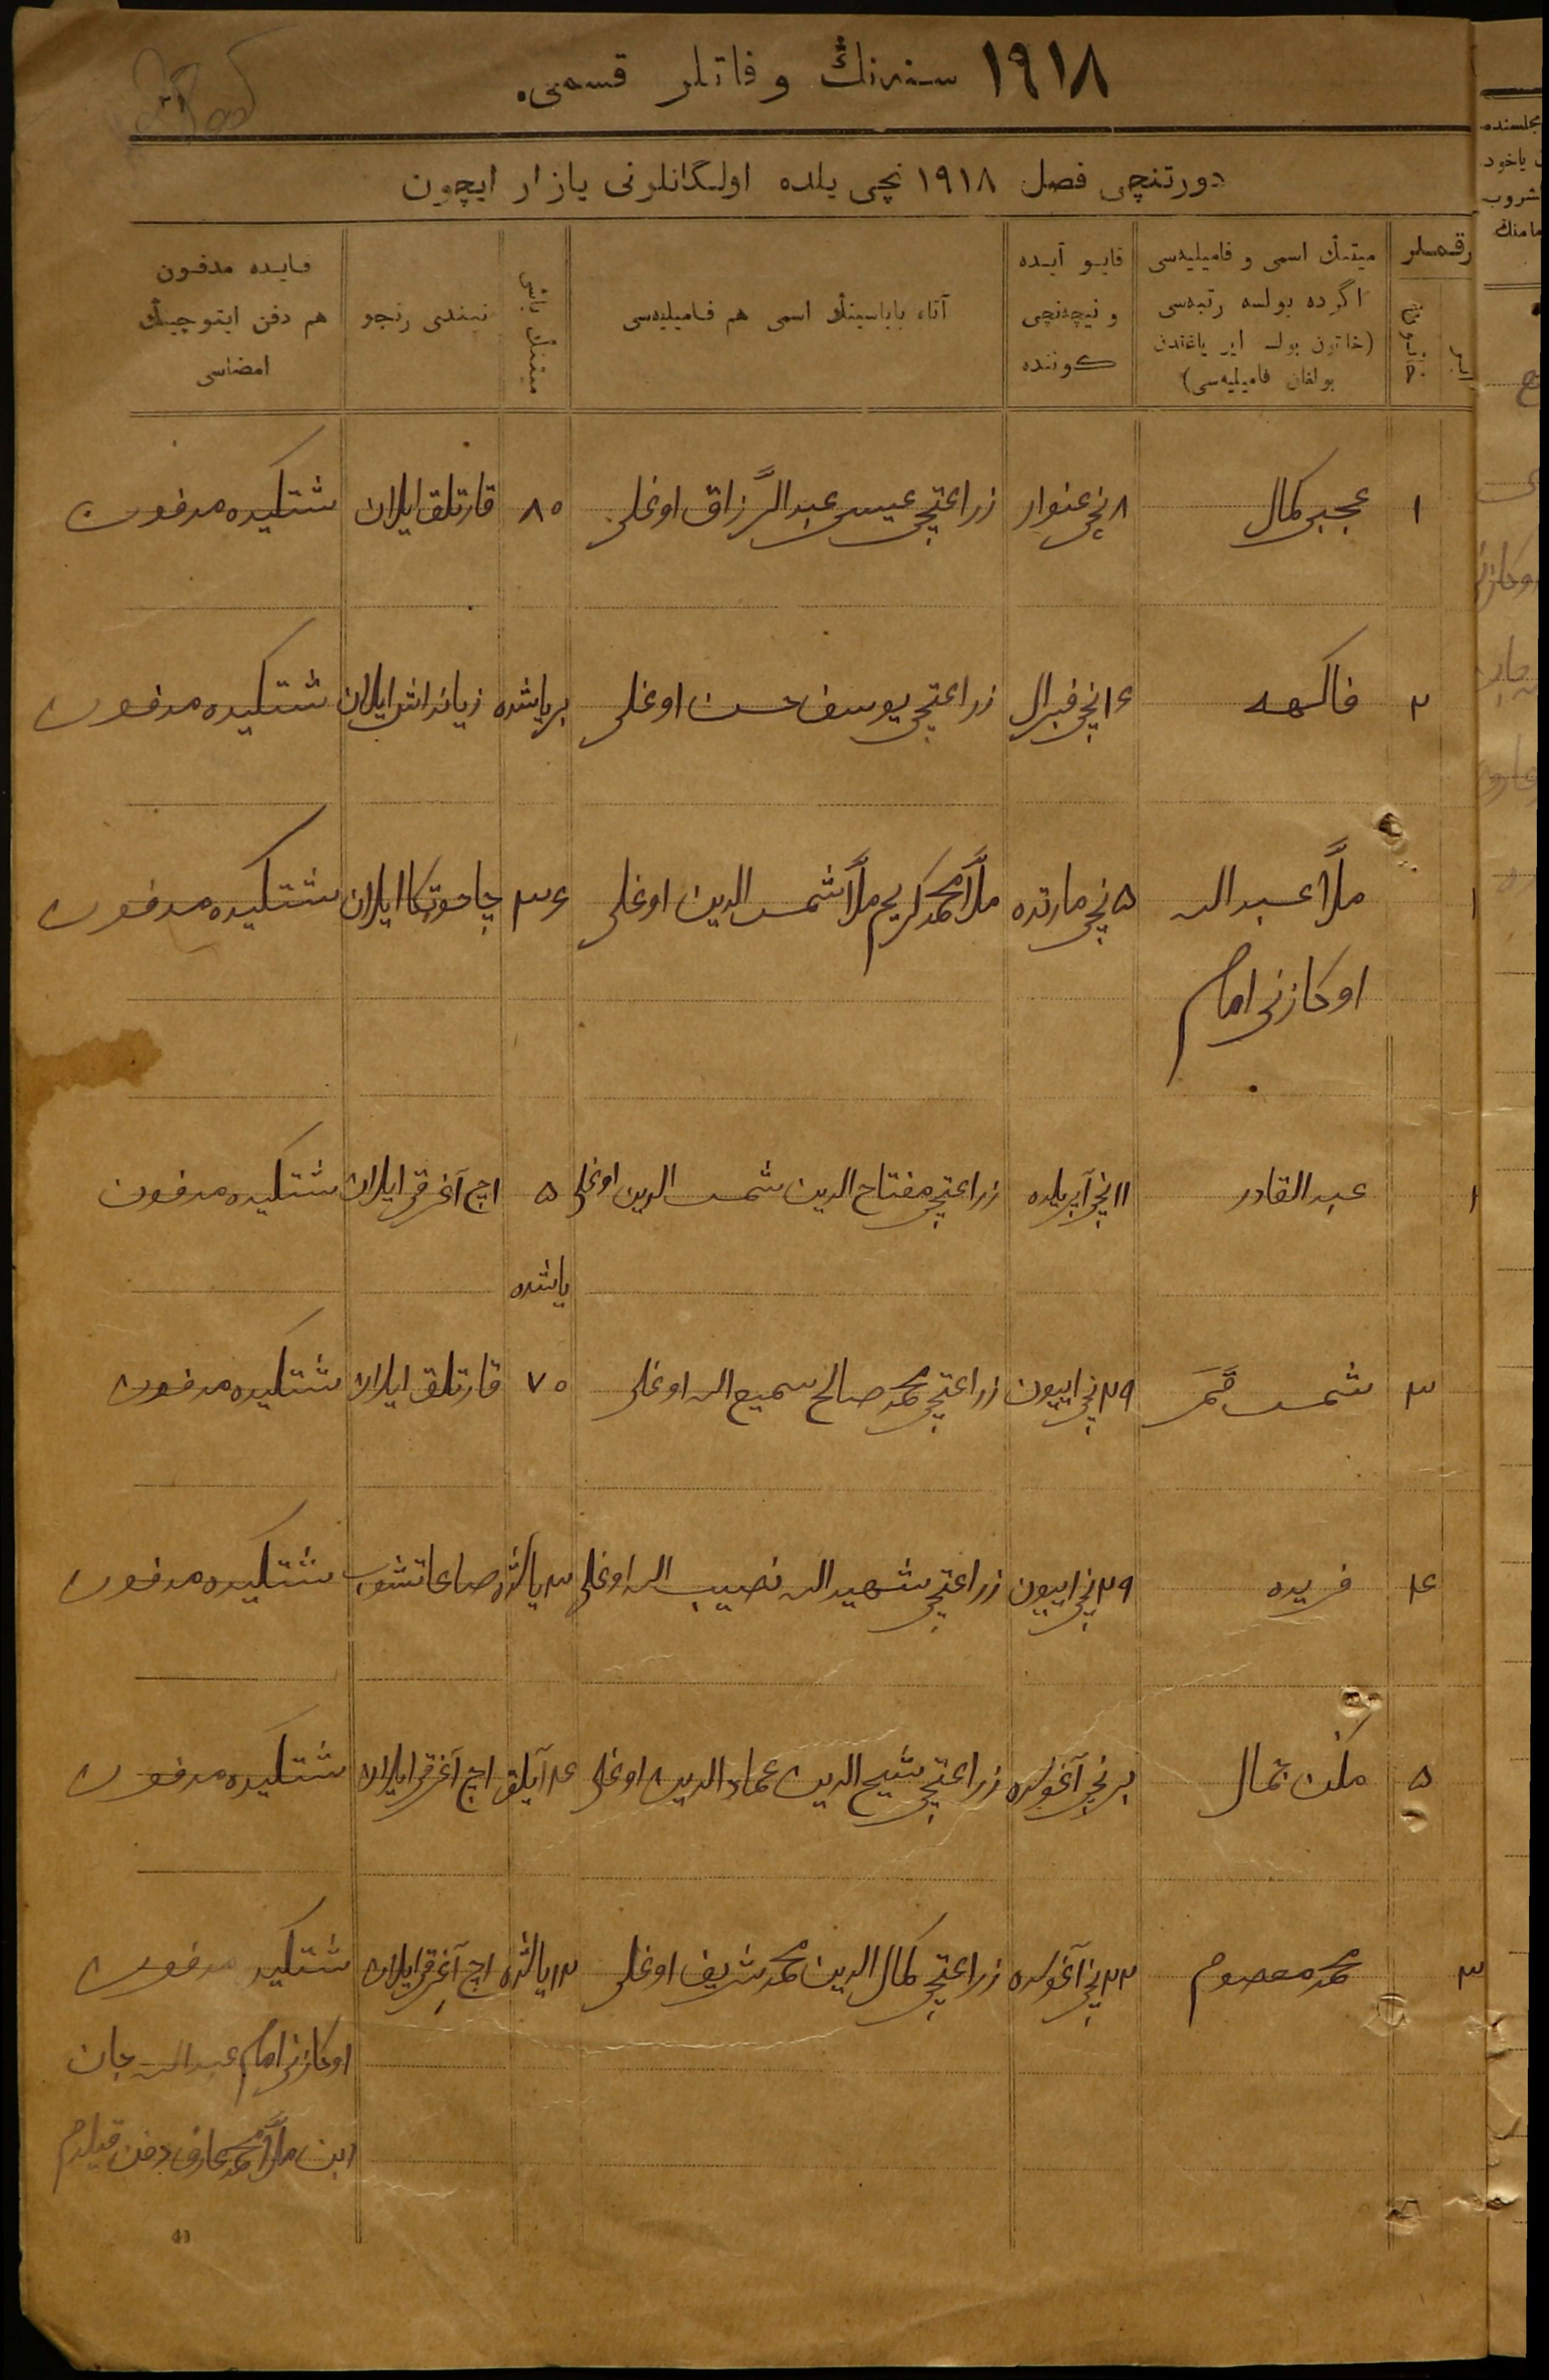 ١٩١٨ سنه‌نڭ وفاتلر قسمی.
دورتنچی فصل ١٩١٨ نچی یلده اولگانلرنی یازار ایچون
رقملر
میتنڭ اسمی و فامیلیه‌سی اگرده بولسه رتبه‌سی (خاتون بولسه ایر یاغندن بولغان فامیلیه‌سی)
قایو آیده و نیچه‌نچی کوننده
آتا، باباسینڭ اسمی هم فامیلیه‌سی
میتنڭ یاشی
نیندی رنجو
قایده مدفون هم دفن ایتوچینڭ امضاسی
١ عجب کمال ٨ نچی غنوار زراعتچی عیسی عبد الرزاق اوغلی ٨٠ قارتلق ایلان شتکیده مدفون
٢ فاکهه ١٤ نچی فبرال زراعتچی یوسف حسن اوغلی بر یاشده زیانداش ایلان شتکیده مدفون
١ ملا عبد الله ٥ نچی مارتده ملا محمد کریم ملا شمس الدین اوغلی ٣٤ چاحوتکا ایلان شتکیده مدفون
اوکازنی امام
١ عبد القادر ١١ نچی آپریلده زراعتچی مفتاح الدین شمس الدین اوغلی ٥ اچ آغرقی ایلان شتکیده مدفون
یاشده
٣ شمس قمر ٢٩ نچی اییون زراعتچی محمد صالح سمیع الله اوغلی ٧٠ قارتلق ایلان شتکیده مدفون
٤ فریده ٢٩ نچی اییون زراعتچی شهید الله نصیب الله اوغلی ٣ یاشده شتکیده مدفون
٥ ملک جمال برنچی آغوستده زراعتچی شیح الدین عماد الدین اوغلی ٤ آیلق اچ آغرقی ایلان شتکیده مدفون
٣ محمد معصوم ٢٢ نچی آغوستده زراعتچی کمال الدین محمد شریف اوغلی ١٢ یاشده اچ آغرقی ایلان شتکیده مدفون
اوکازنی امام عبد الله جان
ابن ملا محمد عارف دفن قیلدم